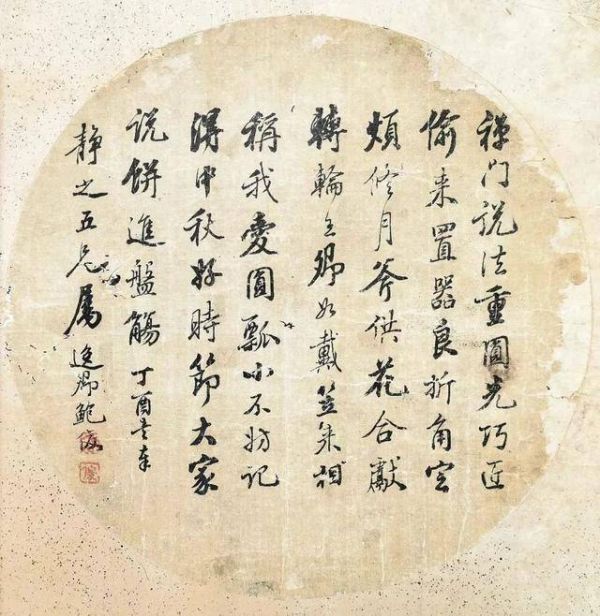 禪門說法重圓光巧匠
偷來置器良折角空
煩修月斧供花合獻
轉輪王卿如戴笠來相
稱我愛圓瓢小不妨記
得中秋好時節大家
說餅進盤觴 丁酉
靜之五兄屬 逸卿鮑